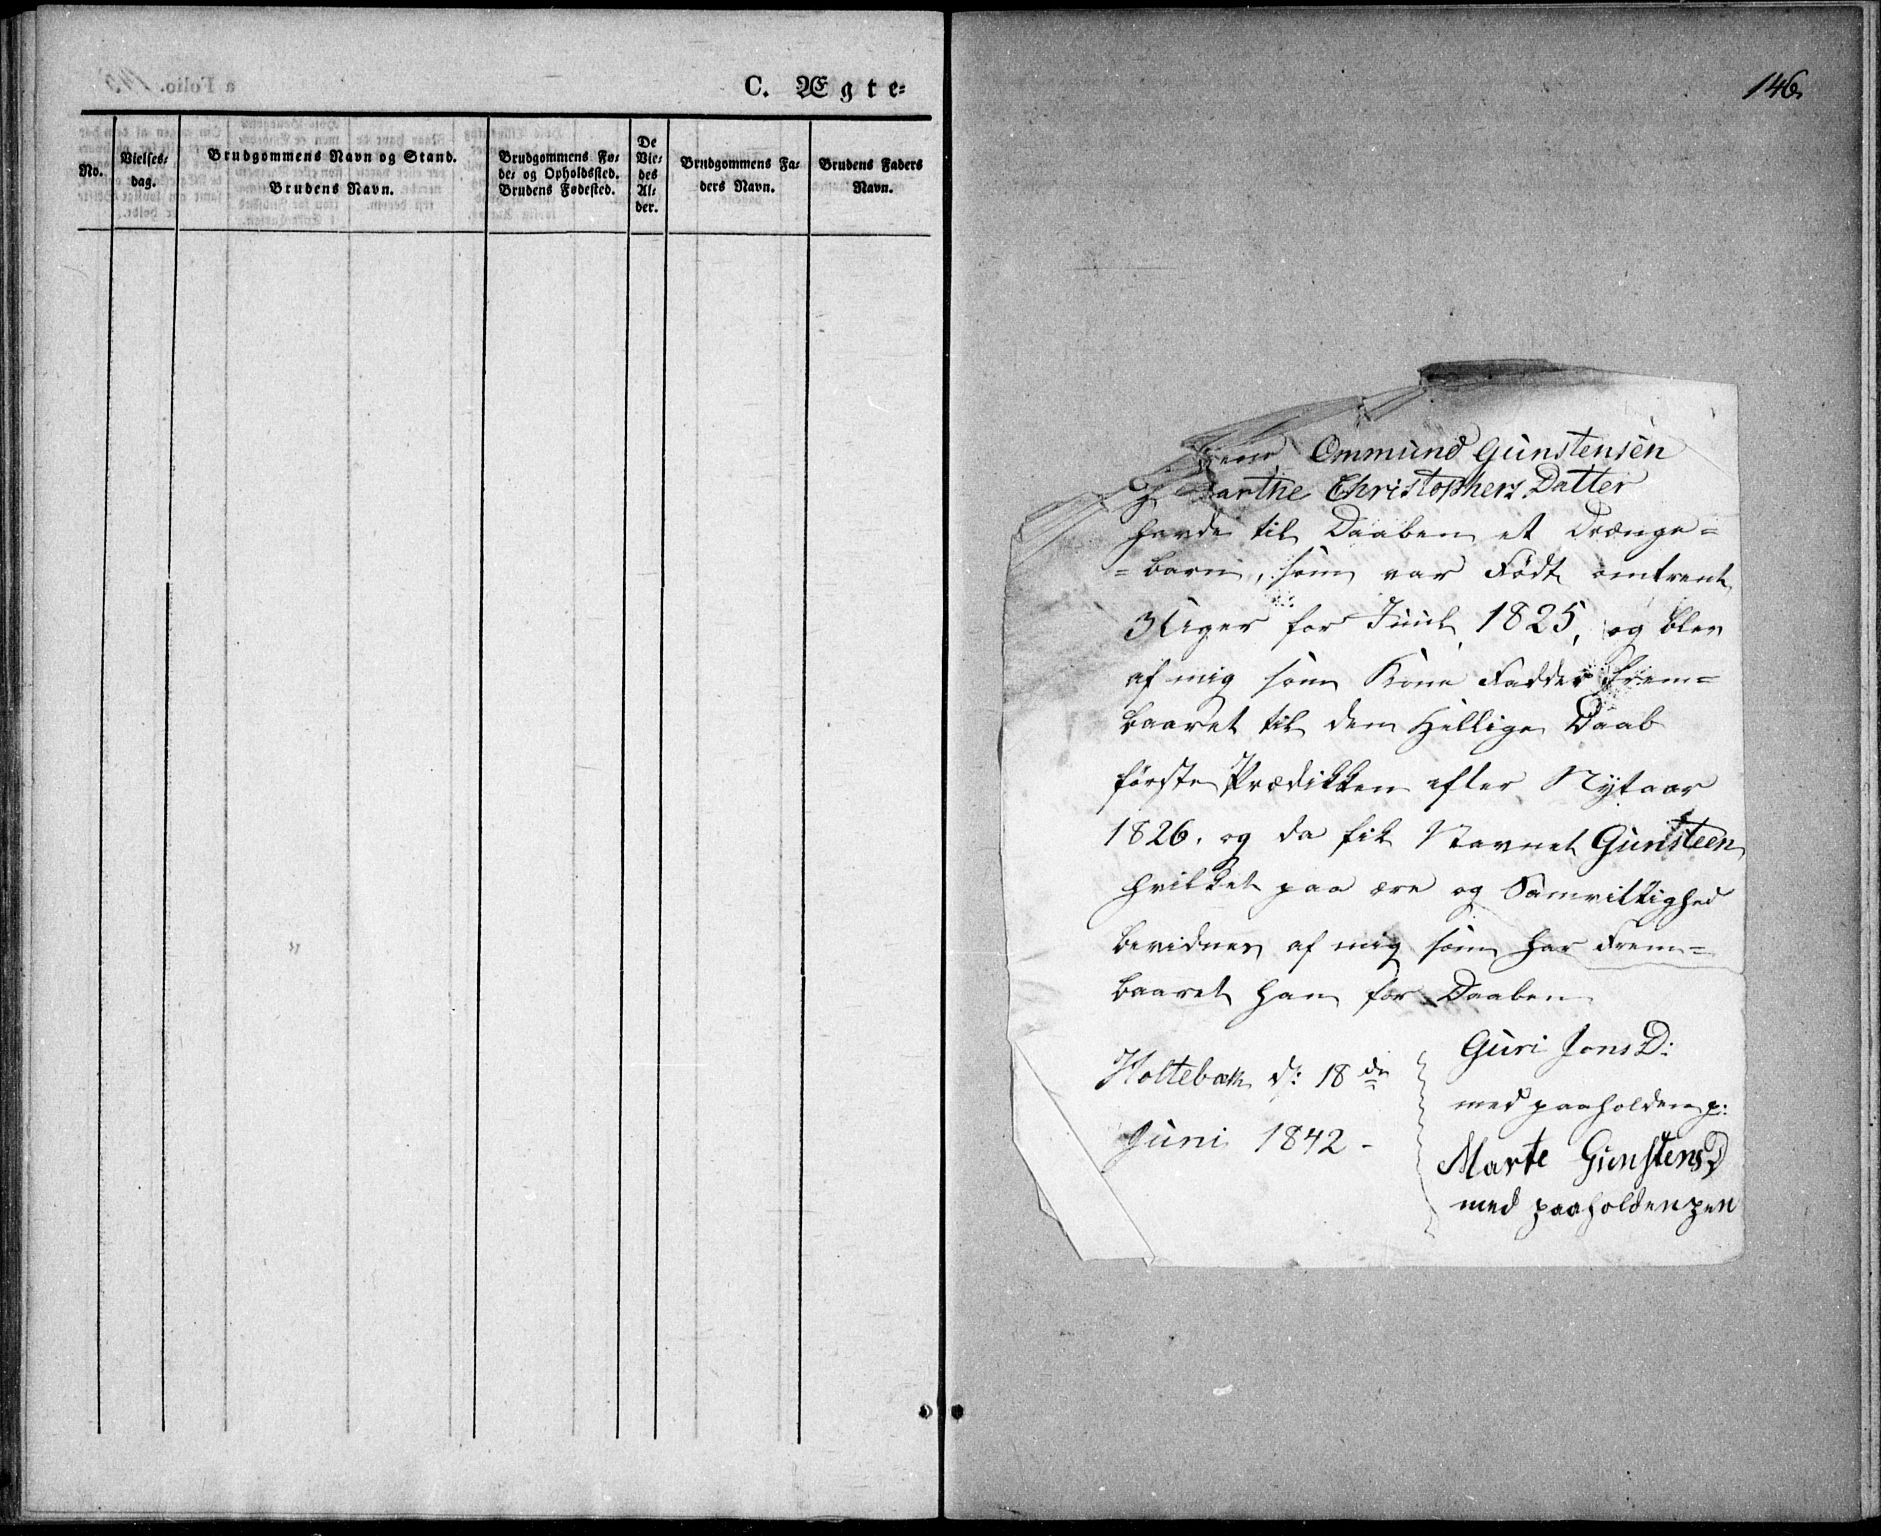 C. Ægte-
No.
Vielses-
dag.
Brudgommens Navn og Stand.
Brudens Navn.
Brudgommens Fø-
de- og Opholdssted.
Brudens Fødested.
De
Vie-
des
Al-
der.
Brudgommens Fa-
ders Navn.
Brudens Faders
Navn.
146.
Ommund Gunstensen
Marthe Christophers Datter
havde til Daaben et Drænge=
=barn, som var Født omtrent
3 Uger for Juul 1825, og blev
af mig som Kone Fadder Frem=
baaret til dem Hellige Daab
første Prædikken efter Nytaar
1826. og da fik Navnet Gunsteen
hvilket paa ære og Samvittighed
bevidnes af mig som har Frem=
baaret ham for Daaben
Holtebæk d: 18de
Juni 1842 -
Guri JonsD:
med paaholden p:
Marte GunstensD
med paaholden pen